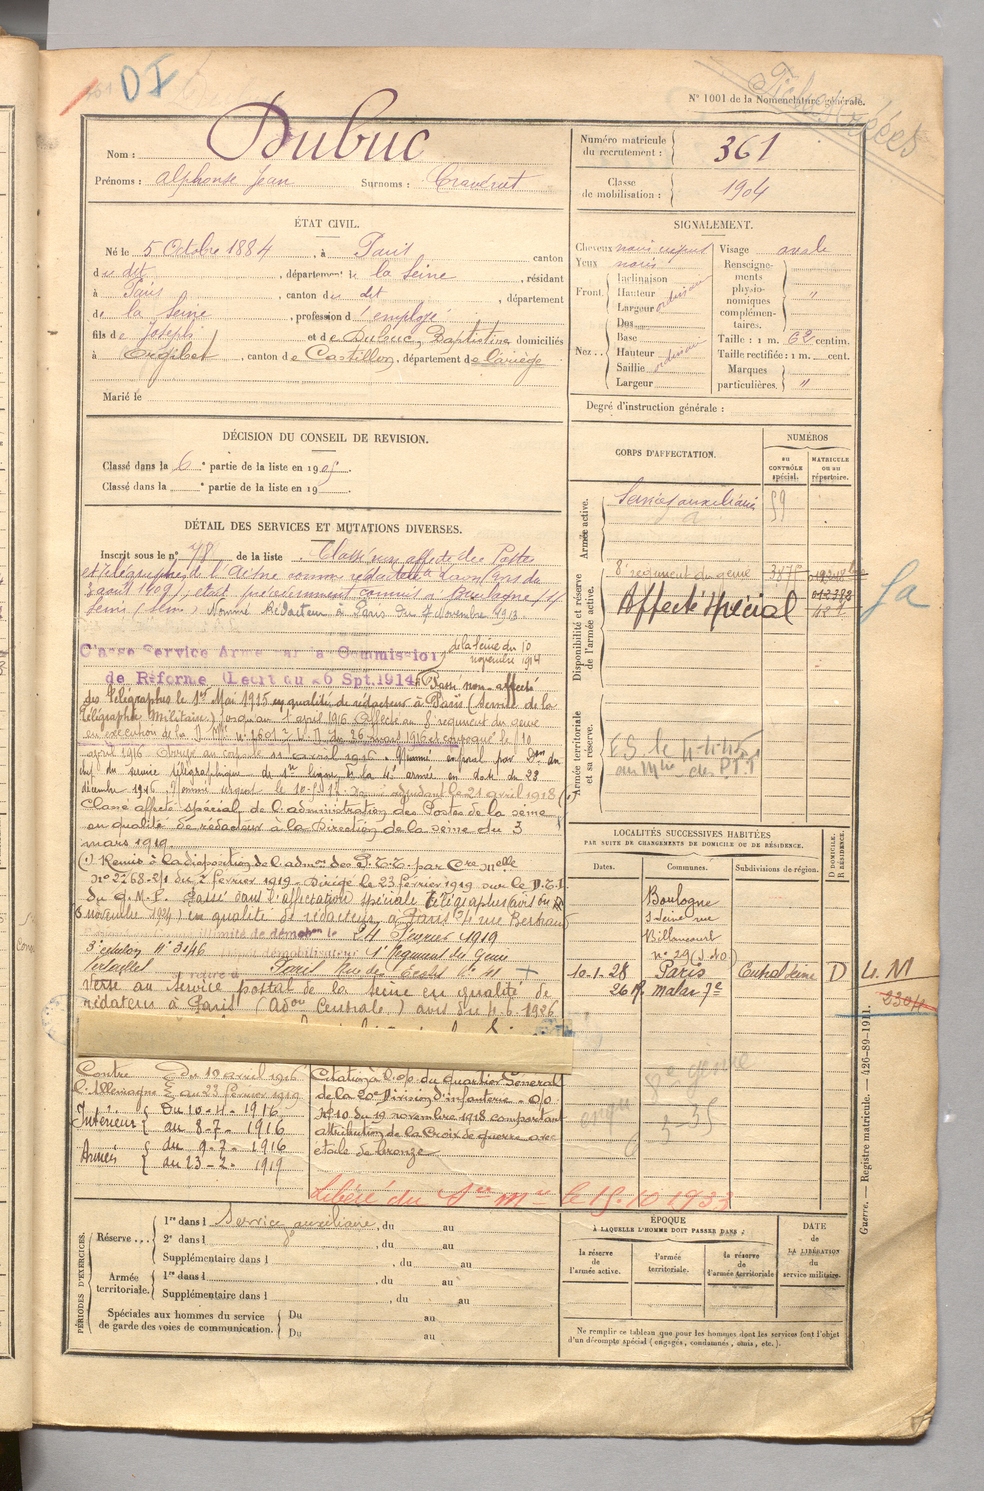 D I
N° 1001 de la Nomenclature générale.
Nom : Dubuc
Prénoms : Alphonse Jean Surnoms :
Numéro matricule du recrutement : 361
Classe de mobilisation : 1904
ÉTAT CIVIL.
Né le 5 Octobre 1884, à Paris canton
du dit, département de la Seine, résidant
à Paris, canton du dit, département
de la Seine, profession d'employé
fils de Joseph et de Dubuc, Baptistine domiciliés
à canton de Castillon, département de l'ariège
Marié le
SIGNALEMENT.
Cheveux noirs
Yeux noirs
Front. Inclinaison
Hauteur
Largeur ordinaire
Nez... Dos
Base
Hauteur
Saillie ordinaire
Largeur
Visage ovale
Renseignements physionomiques complémentaires. "
Taille : 1 m. 62 centim.
Taille rectifiée : 1 m. cent.
Marques particulières. "
Degré d'instruction générale :
DÉCISION DU CONSEIL DE REVISION.
Classé dans la 6e partie de la liste en 1905.
Classé dans la e partie de la liste en 19
CORPS D'AFFECTATION.
NUMÉROS
au CONTRÔLE spécial.
MATRICULE ou au répertoire.
Armée active.
Services auxiliaires 59
Disponibilité et réserve de l'armée active.
8e régiment du génie 3875
Affecté spécial
Armée territoriale et sa réserve.
au des P.T.T
Sa
DÉTAIL DES SERVICES ET MUTATIONS DIVERSES.
Inscrit sous le n° 78 de la liste. Classé non affecté des Postes
et Télégraphes de l'Aisne comme rédacteur à Laon (avis du
3 août 1909), était précédemment commis à Boulogne s/
Seine (Seine). Nommé Rédacteur à Paris du 7 novembre 1913.
Classé Service Armé par la Commission de la Seine du 10 novembre 1914
de Réforme (Décret du 26 Spt. 1914)
Passé non-affecté
des Télégraphes le 1er Mai 1915 en qualité de rédacteur à Paris (Service de la
Télégraphie Militaire) jusqu'au avril 1916. Affecté au 8e régiment du génie
en exécution de la 26 mars 1916 et convoqué le 10
avril 1916. Arrivé au corps le avril 1916. Nommé caporal par Don du
chef du service télégraphique de 1re ligne de la 4e armée en date du 22
décembre 1916. adjudant le 21 avril 1918 (1)
Classé affecté spécial de l'administration des Postes de la Seine
en qualité de rédacteur à la Direction de la Seine du 3
mars 1919.
(1) Remis à la disposition de l'admon des P.T.T. par Cre Mlle
N° 2268-2/1 du 2 février 1919 - Dirigé le 23 février 1919 sur le D.T.I.
du G.M.P. Passé dans l'affectation spéciale Télégraphes (avis du
6 novembre 1924) en qualité de rédacteur, à Paris 4 rue Bertrand
24 Février 1919
3e échelon N° 3146 démobilisateur 1er Régiment du Génie
Versailles Paris Rue des Écoles N° 41
Versé au Service postal de la Seine en qualité de
rédacteur à Paris (Adon Centrale) avis du 4-6-1926
Contre l'Allemagne du 10 avril 1916
au 23 février 1919
Intérieur du 10-4-1916
au 8-7-1916
Armées du 9-7-1916
au 23-2-1919
Citation à l'o/o du quartier Général
de la 20e Division d'infanterie - o/o
N° 10 du 19 novembre 1918 comportant
attribution de la Croix de guerre avec
étoile de bronze
Libéré du Sce Mre le 15.10.1933
LOCALITÉS SUCCESSIVES HABITÉES
PAR SUITE DE CHANGEMENTS DE DOMICILE OU DE RÉSIDENCE.
Dates. Communes. Subdivisions de région.
D DOMICILE. R RÉSIDENCE.
Boulogne
s/Seine rue
Billancourt
n° 29
10-1-28 Paris Central Seine D
26 R. Malar 7e
4. M
8e génie
3-35
Guerre. — Registre matricule. — 426-89-1911.
PÉRIODES D'EXERCICES.
Réserve... 1re dans l Service auxiliaire, du au
2e dans l do, du au
Supplémentaire dans l , du au
Armée territoriale. 1re dans l , du au
Supplémentaire dans l , du au
Spéciales aux hommes du service de garde des voies de communication. Du au
Du au
ÉPOQUE
À LAQUELLE L'HOMME DOIT PASSER DANS :
la réserve de l'armée active.
l'armée territoriale.
la réserve de l'armée territoriale
DATE de LA LIBÉRATION du service militaire.
Ne remplir ce tableau que pour les hommes dont les services font l'objet
d'un décompte spécial (engagés, condamnés, omis, etc.).